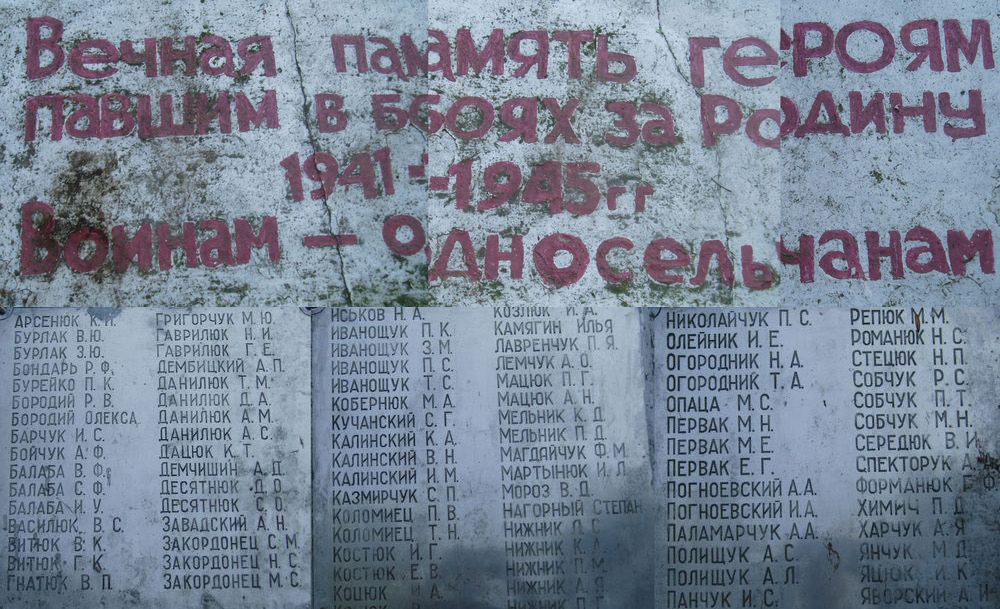 Вечная память героям
павшим в боях за Родину
1941 - 1945гг
Воинам – односельчанам
АРСЕНЮК К.И.
БУРЛАК В.Ю.
БУРЛАК З.Ю.
БОНДАРЬ Р.Ф.
БУРЕЙКО П.К.
БОРОДИЙ Р.В.
БОРОДИЙ ОЛЕКСА
БАРЧУК И.С.
БОЙЧУК А.Ф.
БАЛАБА В.Ф.
БАЛАБА С.Ф.
БАЛАБА И.У.
ВАСИЛЮК В.С.
ВИТЮК В.К.
ВИТЮК Г.К.
ГНАТЮК В.П.
ГРИГОРЧУК М.Ю.
ГАВРИЛЮК Н.И.
ГАВРИЛЮК Г.Е.
ДЕМБИЦКИЙ А.П.
ДАНИЛЮК Т.М.
ДАНИЛЮК Д.А.
ДАНИЛЮК А.М.
ДАНИЛЮК А.С.
ДАЦЮК К.Т.
ДЕМЧИШИН А.Д.
ДЕСЯТНЮК Д.О.
ДЕСЯТНЮК С.О.
ЗАВАДСКИЙ А.Н.
ЗАКОРДОНЕЦ С.М.
ЗАКОРДОНЕЦ Н.С.
ЗАКОРДОНЕЦ М.С.
ИСЬКОВ Н.А.
ИВАНОЩУК П.К.
ИВАНОЩУК З.М.
ИВАНОЩУК П.С.
ИВАНОЩУК Т.С.
КОБЕРНЮК М.А.
КУЧАНСКИЙ С.Г.
КАЛИНСКИЙ К.А.
КАЛИНСКИЙ В.Н.
КАЛИНСКИЙ И.М.
КАЗМИРЧУК С.П.
КОЛОМИЕЦ П.В.
КОЛОМИЕЦ Т.Н.
КОСТЮК И.Г.
КОСТЮК Е.В.
КОЦЮК И.А.
КОЗЛЮК И.А.
КАМЯГИН ИЛЬЯ
ЛАВРЕНЧУК П.Я.
ЛЕМЧУК А.О.
МАЦЮК П.Г.
МАЦЮК А.Н.
МЕЛЬНИК К.Д.
МЕЛЬНИК П.Д.
МАГДАЙЧУК Ф.М.
МАРТЫНЮК И.Л.
МОРОЗ В.Д.
НАГОРНЫЙ СТЕПАН
НИЖНИК Л.С.
НИЖНИК К.А.
НИЖНИК П.М.
НИЖНИК А.Я.
НИКОЛАЙЧУК П.С.
ОЛЕЙНИК И.Е.
ОГОРОДНИК Н.А.
ОГОРОДНИК Т.А.
ОПАЦА М.С.
ПЕРВАК М.Н.
ПЕРВАК М.Е.
ПЕРВАК Е.Г.
ПОГНОЕВСКИЙ А.А.
ПОГНОЕВСКИЙ И.А.
ПАЛАМАРЧУК А.А.
ПОЛИЩУК А.С.
ПОЛИЩУК А.Л.
ПАНЧУК И.С.
РЕПЮК М.М.
РОМАНЮК Н.С.
СТЕЦЮК Н.П.
СОБЧУК Р.С.
СОБЧУК П.Т.
СОБЧУК М.Н.
СЕРЕДЮК В.И
СПЕКТОРУК А.
ФОРМАНЮК Г.Ф
ХИМИЧ П.Д.
ХАРЧУК А.Я
ЯНЧУК М.Д
ЯЦЮК И.К
ЯВОРСКИЙ А.И